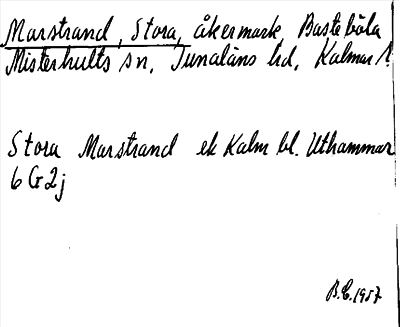 Marstrand, Stora, åkermark, Basteböla
Misterhults sn, Tunaläns hd, Kalmar l.
Stora Marstrand ek Kalm bl. Uthammar
6 G 2j
B.E. 1957